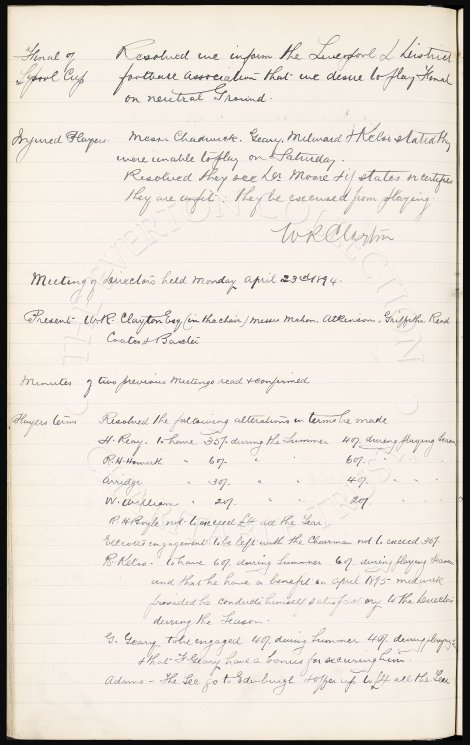 Final of Resolved we inform the Liverpool & District
L'pool Cup football association that we desire to play Final
on neutral Ground.
Injured Players. Messrs Chadwick. Geary, Milward & Kelso stated they
were unable to play on Saturday.
Resolved they see Dr Moore & if states or certifies
they are unfit: they be excused from playing
W R Clayton
Meeting of Directors held Monday April 23rd 1894.
Present W.R. Clayton Esq (in the chair) Messrs Mahon, Atkinson, Griffiths, Read
Coates & Baxter
Minutes of two previous Meetings read & confirmed
Players terms Resolved the following alterations in terms be made
H. Reay. to have 35/- during the Summer 40/- during playing Season
R.H. Howarth " 60/- " " 60/-
Arridge " 30/- " " 40/- " "
W. William " 20/- " " 20/-
R H Boyle not to exceed £4 all the Year.
Elliotts engagement to be left with the Chairman not to exceed 30/-
R. Kelso - to have 60/- during Summer 60/- during playing Season
and that he have a benefit in April 1895 midweek
provided he conducts himself satisfactory to the Directors
during the Season.
G. Geary to be engaged 40/- during Summer 40/- during playing
& that F Geary have a bonus for securing him.
Adams - The Sec go to Edinburgh & offer up to £4 all the Year
THE EVERTON COLLECTION